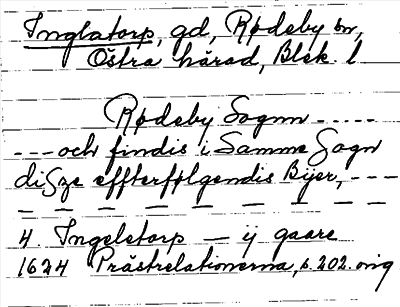 Inglatorp, gd, Rødeby sn,
Östra härad, Blek. l
Rødeby Sognn -----
--- och findis i Samme Sogn
disze effterfølgendis Bÿer, ---
— — — — — — — —
4. Ingeletorp — ij gaare
1624 Prästrelationerna, s. 202. orig